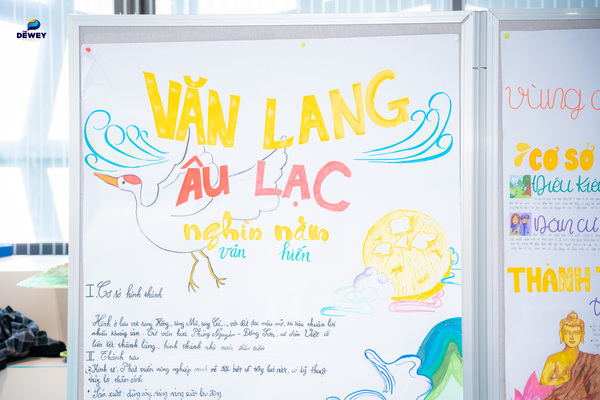 DEWEY
VĂN LANG
ÂU LẠC
nghìn năm
văn hiến
I. Cơ sở hình thành
Hình ở lưu vực sông Hồng, sông Mã, sông Cả..., với đất đai màu mỡ, khí hậu thuận lợi
nhiều khoáng sản. Cư dân văn hoá Phùng Nguyên - Đông Sơn, cư dân Việt cổ
liên kết thành làng, hình thành nhà nước đầu tiên
II. Thành tựu
Kinh tế: Phát triển nông nghiệp lúa nước, có kỹ thuật
thủy lợi
Sản xuất: dùng cày nâng năng suất lao động
vùng
CƠ SỞ
Điều kiện
Dân cư
THÀNH T